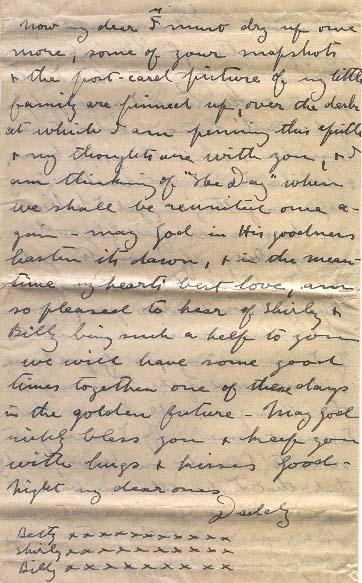 Now my dear I must dry up once
more, some of your snapshots
& the post-card picture of my little
family are pinned up, over the desk
at which I am penning this epistle
& my thoughts are with you, & I
am thinking of "The Day" when
we shall be reunited once a-
gain - may God in His goodness
hasten its dawn, & in the mean-
time my hearts best love, am
so pleased to hear of Shirly &
Billy being such a help to you
we will have some good
times together one of these days
in the golden future - May God
richly bless you & keep you
with hugs & kisses Good-
night my dear ones
Daddy
Betty x x x x x x x x x x x
Shirly x x x x x x x x x x x
Billy x x x x x x x x x x